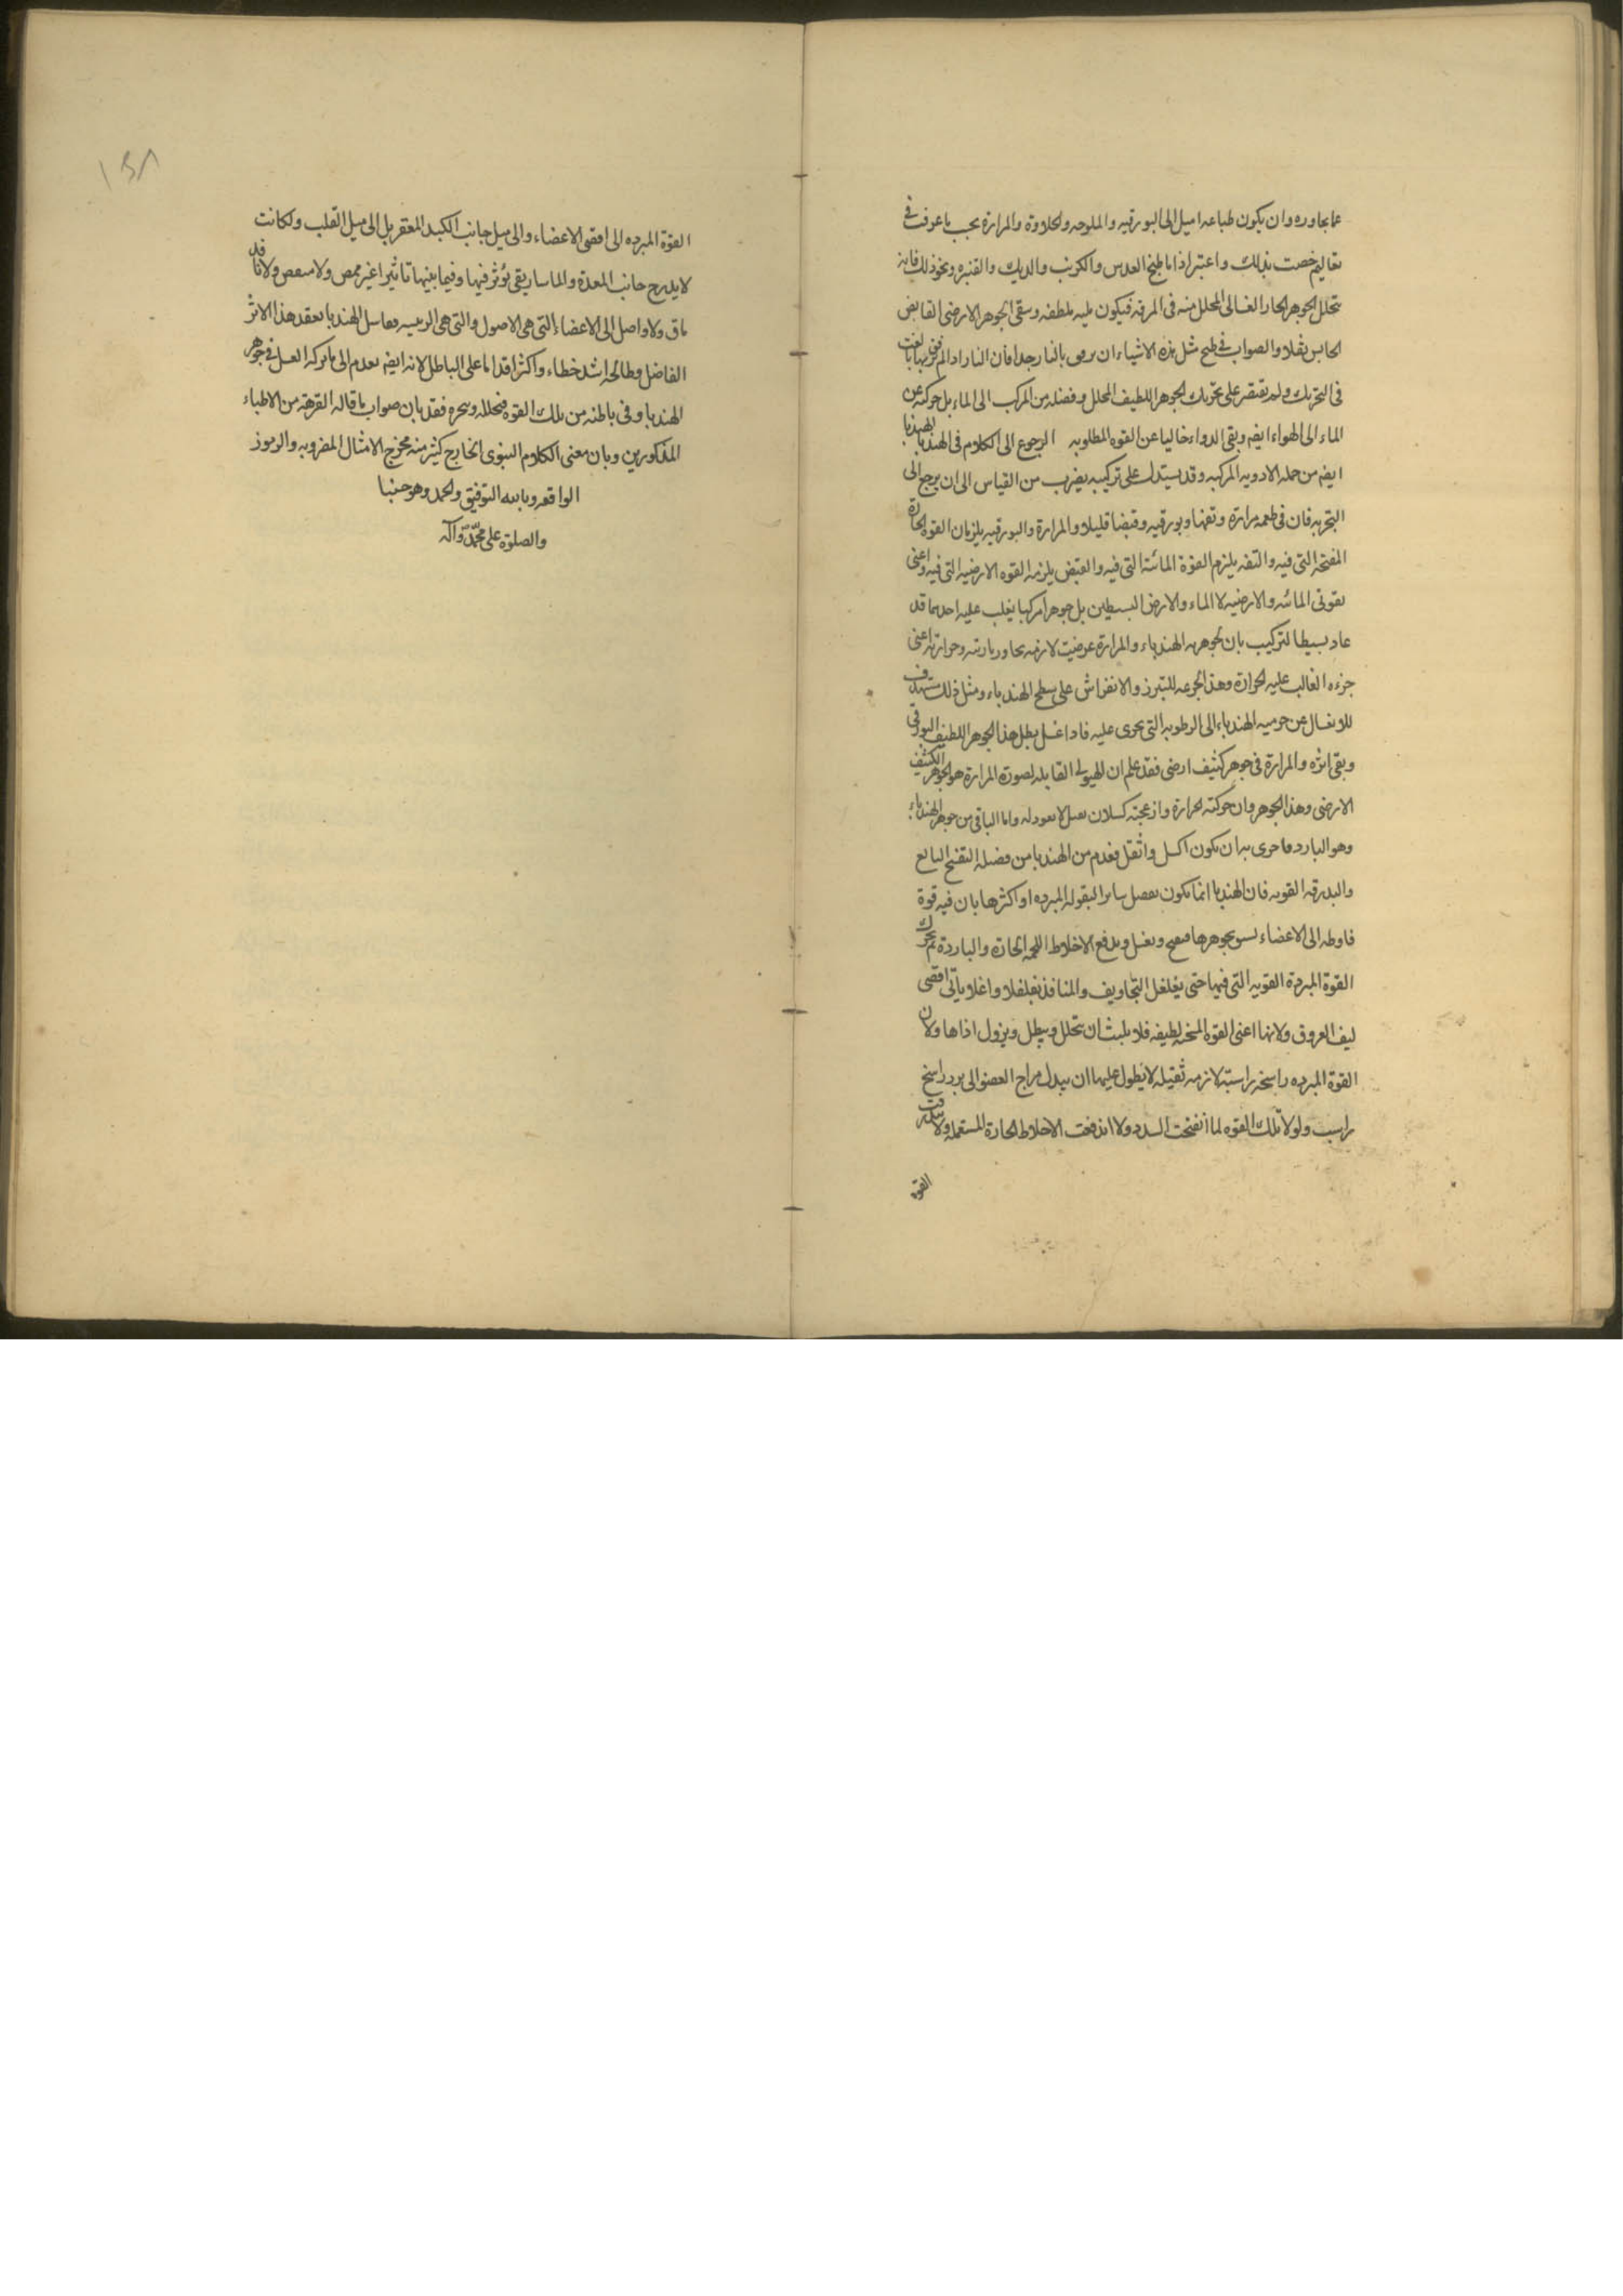 عما يجاوره وان يكون طباعه اميل الى البورقيه والملوحه والحلاوة والمرارة بحسب ما عرفت في
تعاليم خصت بذلك واعتبر اذا ما طبخ العدس والكرنب والديك والقنبره ونحو ذلك فانه
يتحلل الجوهر الحار الغسالى المحلل منه فى المرقه فيكون مليه ملطفه وسقى الجوهر الارضى القابض
الحابس ثفلا والصواب فى طبخ مثل هذه الاشياء ان يرفق بالنار جدا فان النار اذا لم يرفق بها بالغت
فى التحريك ولم تقتصر على تحريك الجوهر اللطيف المحلل وفضله من المركب الى الماء بل حركته عن
الماء الى الهواء ايضم وبقى الدواء خاليا عن القوه المطلوبه الرجوع الى الكلام فى الهندبا الهندبا
ايضم من جمله الادويه المركبه وقد يستدل على تركيبه بضرب من القياس الى ان يرجع الى
التجربه فان فى طعمه مرارة وتفها وبورقيه وقبضا قليلا والمرارة والبورقيه يلزمان القوه الحارة
المفتحه التى فيه والتفه يلزم القوة المائية التى فيه والقبض يلزمه القوه الارضيه التى فيه واعنى
بقوتى المائيه والارضيه لا الماء والارض البسيطين بل جوهرا مركبا يغلب عليه احدهما قد
عاد بسيطا لتركيب بان لجوهريه الهندباء والمرارة عرضيت لازمه بحاوريارته وحرارته اعنى
جزءه الغالب عليه الحرارة وهذا الجزء للتبرز والانفراش على سطح الهندباء ومثل ذلك مستهدف
للانغسال عن جرميه الهندباء الى الرطوبه التى تجرى عليه فاذا غسل بطل هذا الجوهر اللطيف البورقى
وبقى اثره والمرارة فى جوهر كثيف ارضى فقد علم ان الهيولى القابله لصورة المرارة هو الجوهر الكثيف
الارضى وهذا الجوهر وان حركته الحرارة وازعجته كسلان لا واما الباقى من جوهر الهندباء
وهو البارد فاحرى به ان يكون اكسل واثقل فعدم من الهندبا من فضله التفتيح البالغ
والبدرقه القويه فان الهندبا انما يكون تفضل ساير البقوله المبرده او اكثرها بان فيه قوة
الى الاعضاء بجوهرها فتفتح وتغسل وتدفع الاخلاط الحارة والباردة ثم يحرك
القوة المبردة القويه التى فيها حتى يغلغل التجاويف والمنافذ تغلغلا واغلا ياتى اقصى
ليف العروق ولانها اعنى القوه المسخنه لطيفه فلا يلبث ان يتحلل ويبطل ويزول اذاها ولان
القوة المبرده راسخه راسبه لازمه ثقيله لا يطول عليها ان يبدل مزاج العضو الى برد راسخ
راسب ولولا تلك القوه لما انفتحت السدد ولا اندفعت الاخلاط الحارة المستعمله ولا بدرقت
القوة
١٥٨
القوة المبرده الى اقصى الاعضاء والى ميل جانب الكبد المقعر بل الى ميل القلب ولكانت
لا جانب المعدة والماساريقى يؤثر فيها وفيما بينها تاثيرا غير ممض ولا ولا نافد
باق ولا واصل الى الاعضاء التى هى الاصول والتى هى الرئيسيه فغاسل الهندبا يفقد هذا الاثر
الفاضل وطابخه اشد خطاء واكثر اقداما على الباطل لانه ايضم يعدم الى ما تركه الغسل فى جوهر
الهندبا وفى باطنه من تلك القوه فيحلله ويبخره فقد بان صواب ما قاله القرهته من الاطباء
المذكورين وبان معنى الكلام النبوى الخارج كثير منه مخرج الامثال المضروبه والرموز
الواقعه وبالله التوفيق والحمد وهو حسبنا
والصلوة على محمد وآله